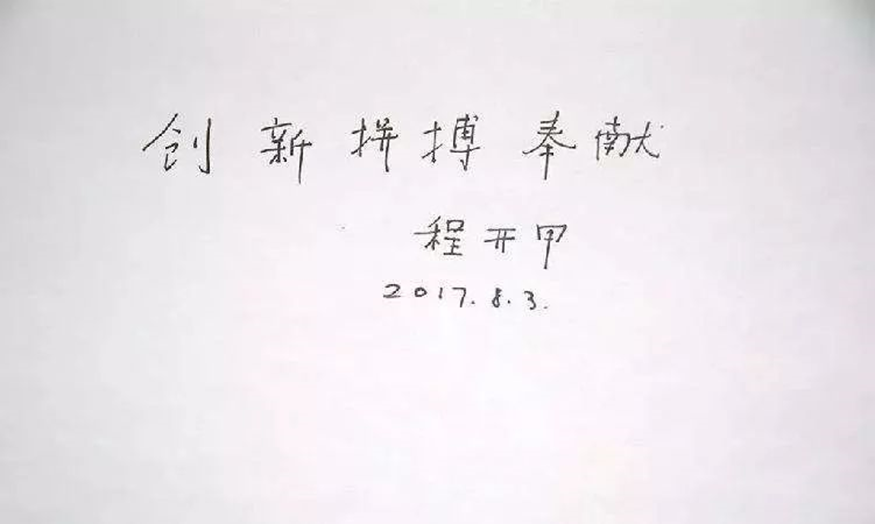 创新拼搏奉献
程开甲
2017.8.3.